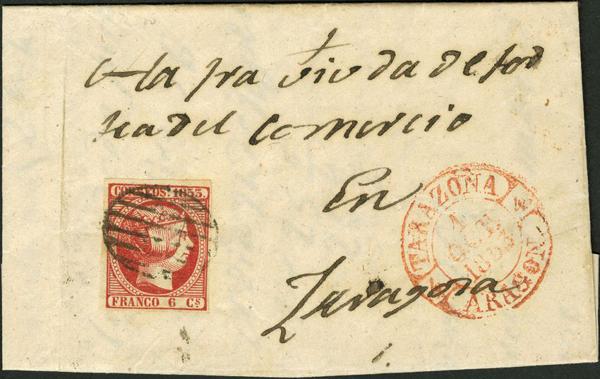 A la Sra Viuda de
del Comercio
En
Zaragoza
CORREOS. 1853.
FRANCO 6 Cs
TARAZONA
1853
ARAGON